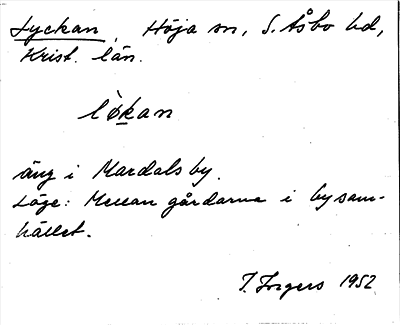 Lyckan, Höja sn, S. Åsbo hd,
Krist. län.
lø̀kan
äng i Mardalsby.
Läge: Mellan gårdarna i bysam-
hället.
I. Ingers 1952